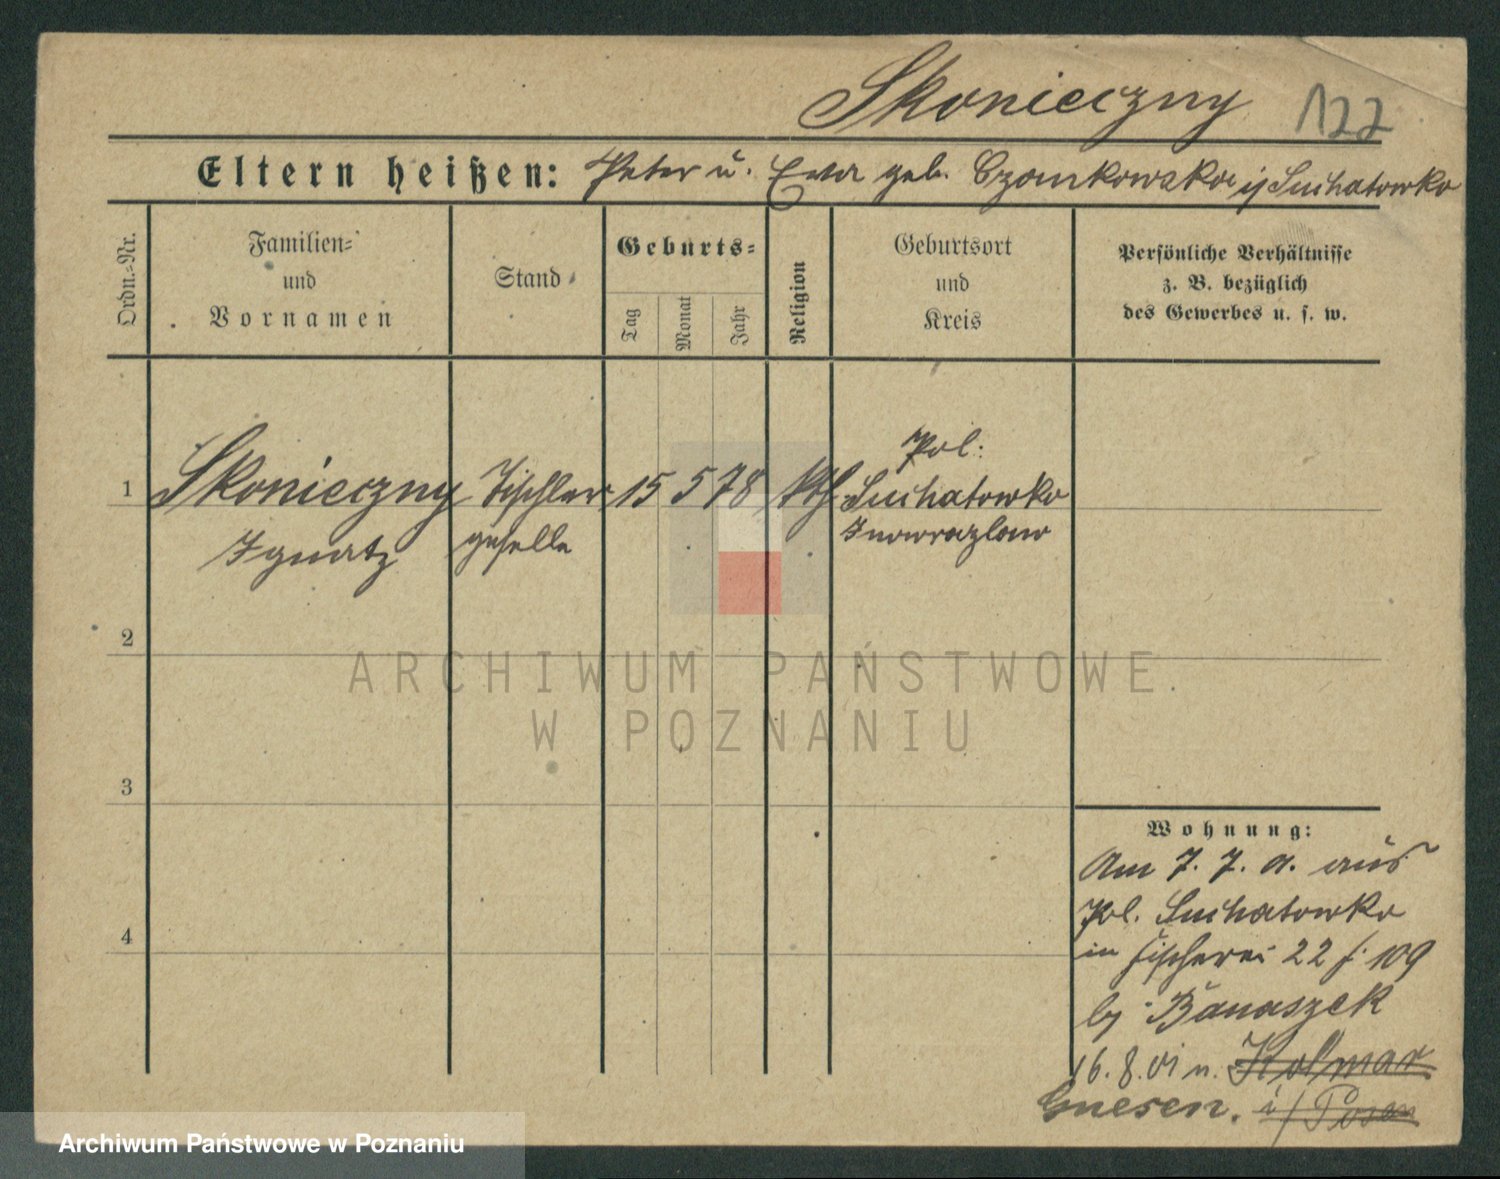 Skonieczny 122
Eltern heißen: Peter u. Ewa geb. Czamkowska in Suchatowko
Ordn.-Nr.
Familien-
und
Vornamen
Stand
Geburts-
Tag
Monat
Jahr
Religion
Geburtsort
und
Kreis
Persönliche Verhältnisse
z. B. bezüglich
des Gewerbes u. s. w.
Pol.
1 Skonieczny Tischler 15 5 78 kth. Suchatowko
Ignatz geselle Inowrazlaw
2
3
4
Wohnung:
Am 7. 7. a. aus
Pol. Suchatowko
in Fischerei 22 f. 109
bj Banaszek
16. 8. 01 n. Kolmar
Gnesen. i/Posen
ARCHIWUM PAŃSTWOWE
W POZNANIU
Archiwum Państwowe w Poznaniu